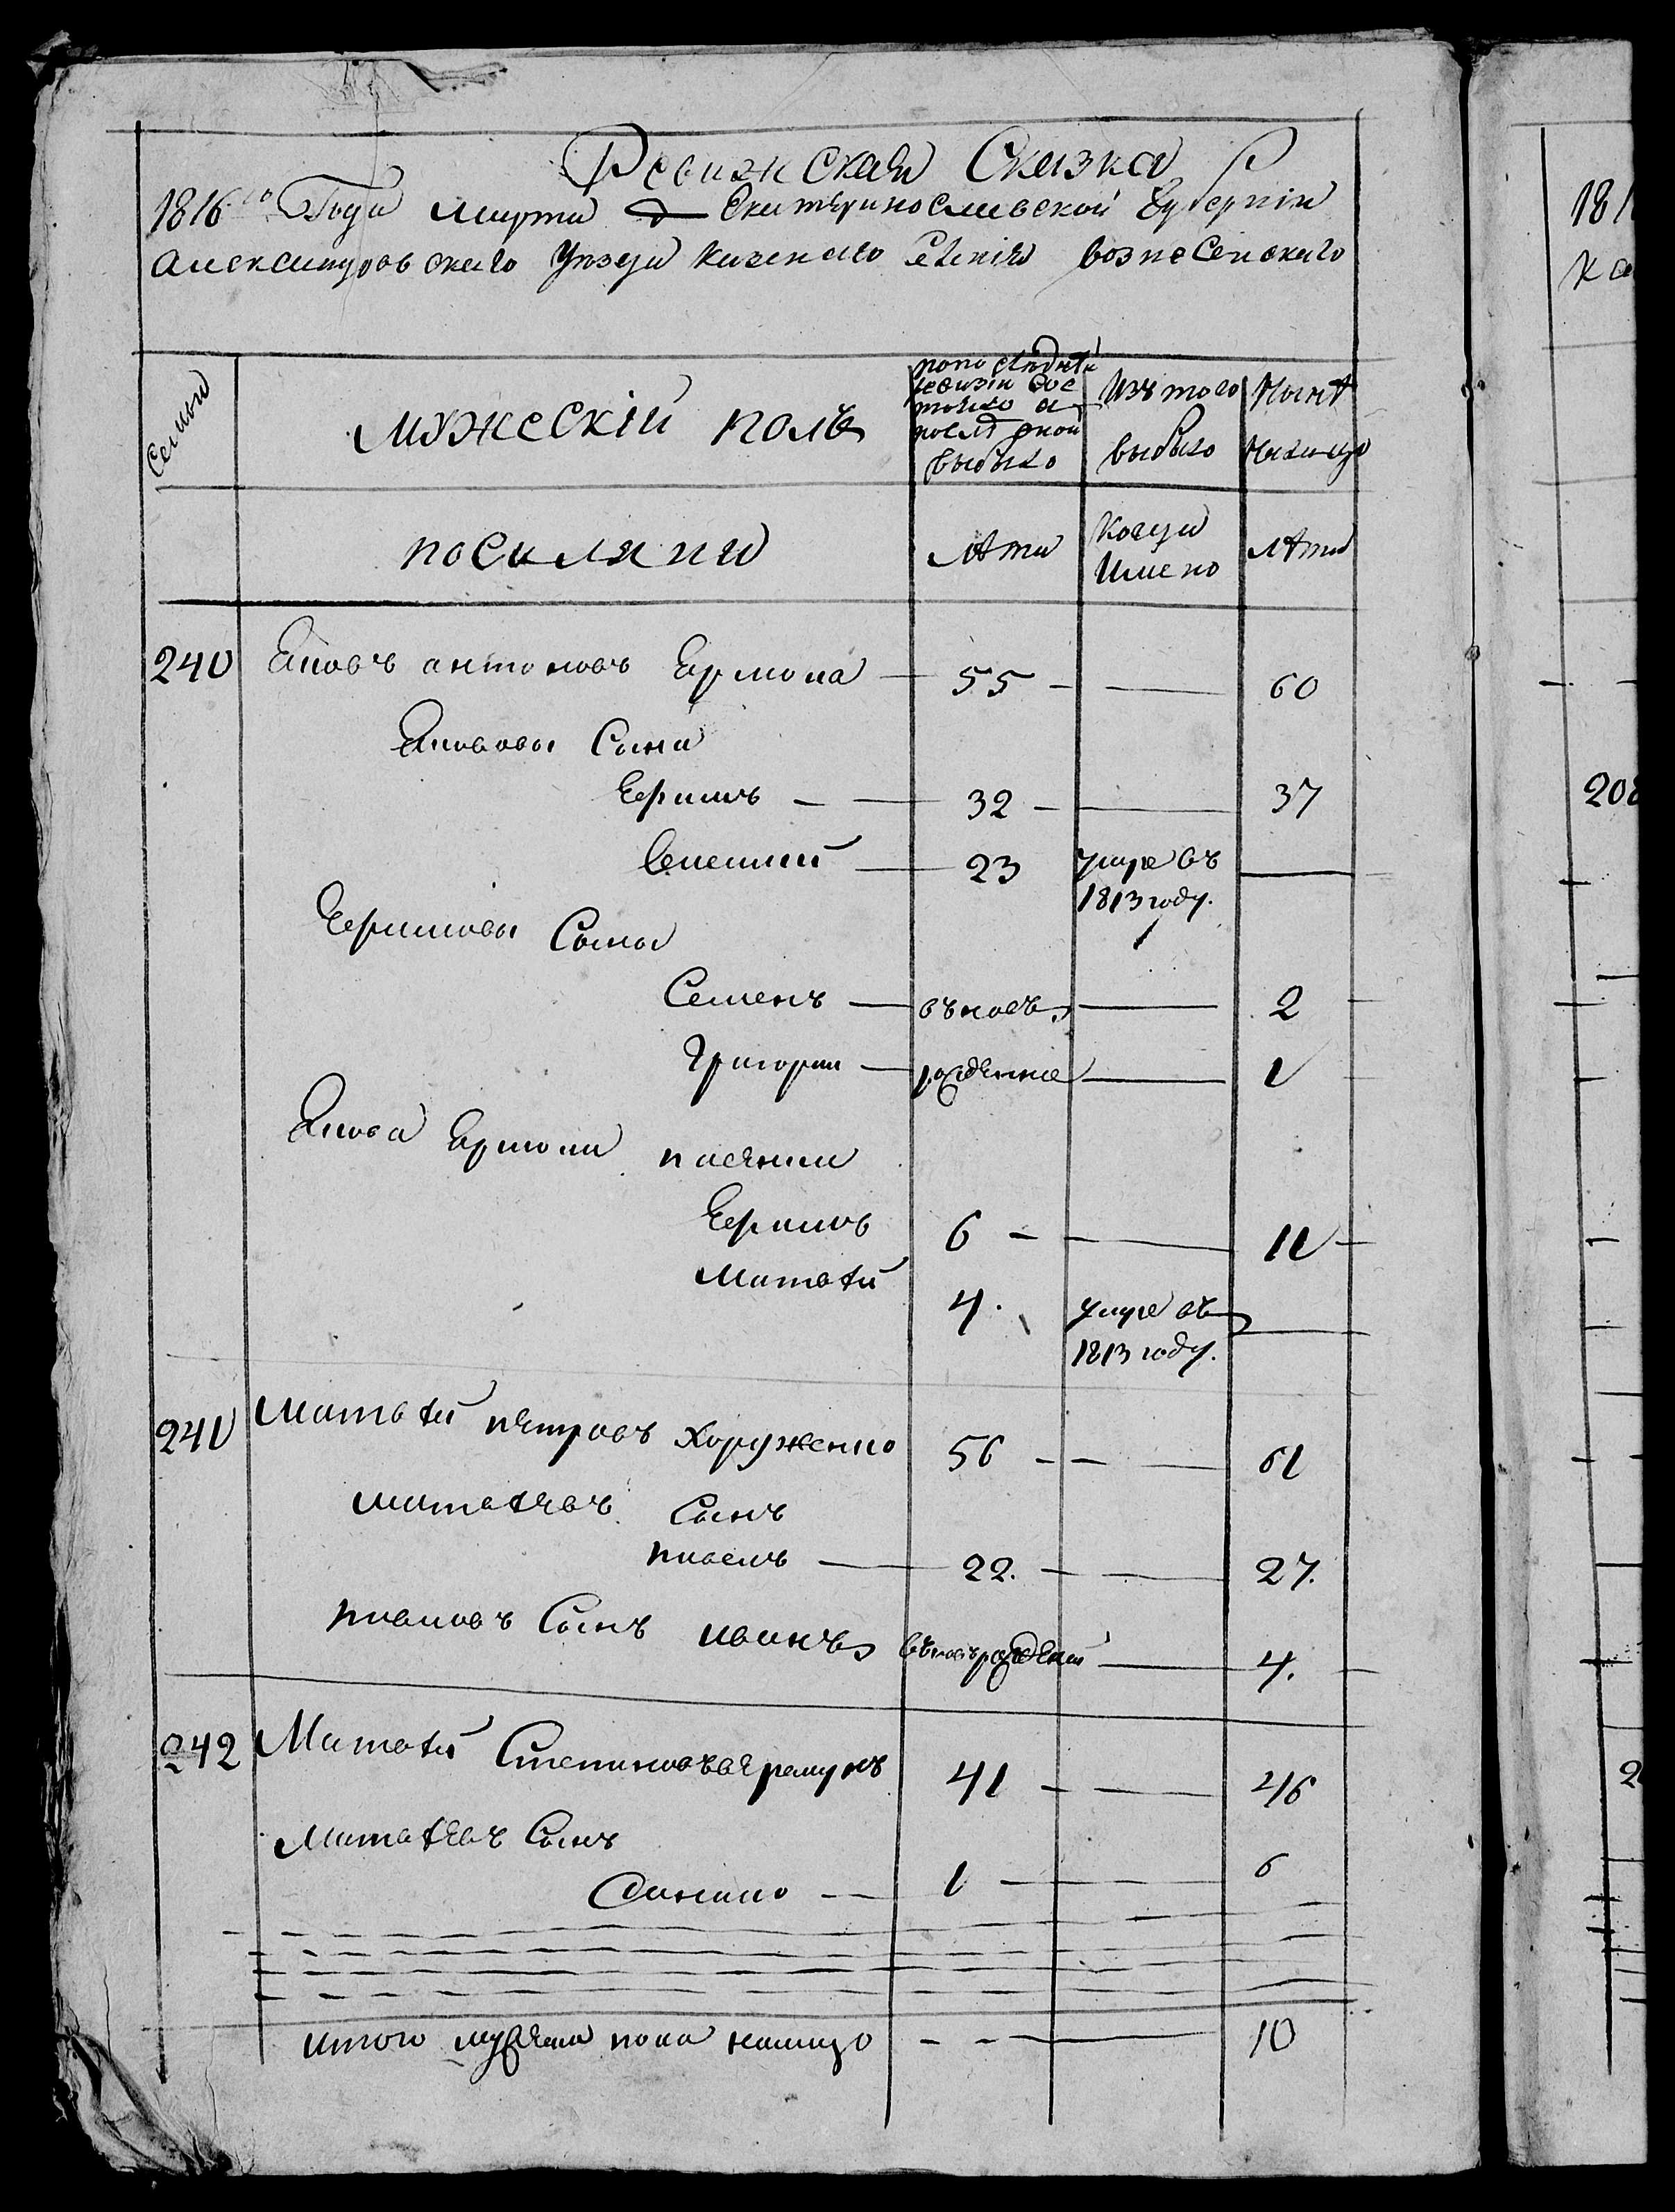 Ревижская Сказка
1816го Года марта Екатеринославской Губерніи
Александровскаго Уезда казенаго селенія вознесенскаго
Семьи
мужескій полъ
по последней ревизіи состояло и после оной выбыло
Изъ того выбыло
Ныне налицо
поселяни
лета
когда Имено
лета
240 Яковъ антоновъ Ермола 55 60
Яковови Сыни
Ефимъ 32 37
Алексей 23 умре въ 1813 году.
Ефимови Сыны
Семенъ въновь 2
Григорий рожденние 1
Якова Ермоли пасинки
Ефимъ 6 11
Матвей 4. умре въ 1813 году.
241 Матвей петровъ Хоруженко 56 61
Матвеевъ Сынъ
павелъ 22. 27.
павловъ Сынъ иванъ въновърожденый 4.
242 Матвей Степановъ 41 46
Матвеевъ Сынъ
Данило 1 6
итого мужеска пола налицо 10
181
208